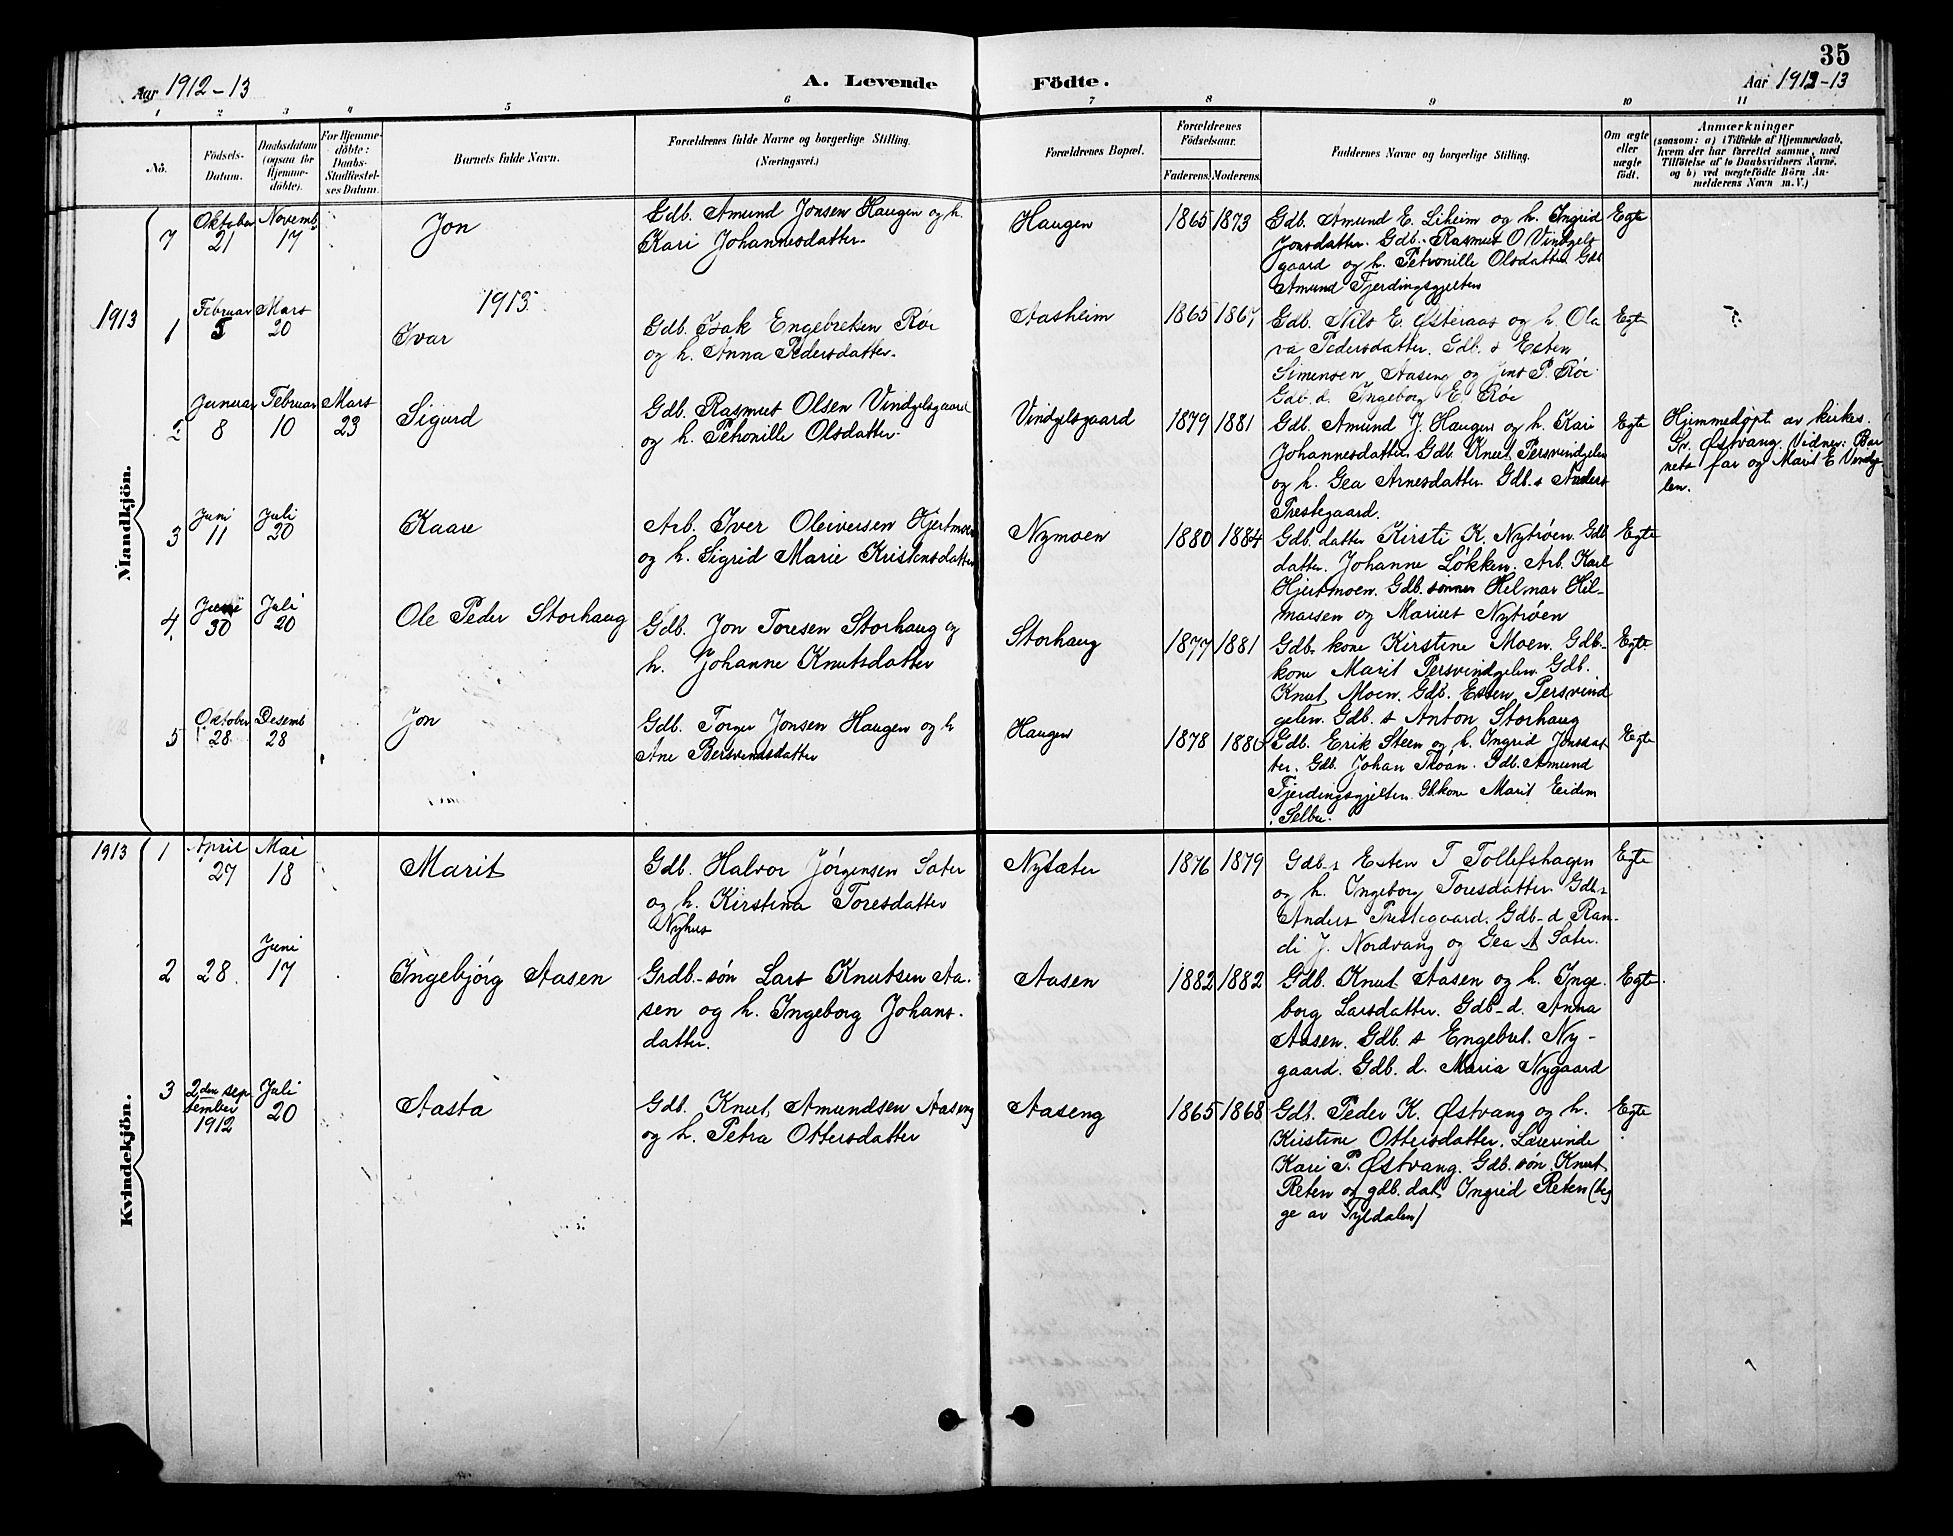 35
Aar 1912-13
A. Levende
Födte.
Aar 1912-13
1 2 3 4 5 6 7 8 9 10 11
No.
Födsels-
Datum.
Daabsdatum
(ogsaa for
Hjemme-
döbte).
For Hjemme-
döbte:
Daabs-
Stadfæstel-
ses Datum.
Barnets fulde Navn.
Forældrenes fulde Navne og borgerlige Stilling.
(Næringsvei.)
Forældrenes Bopæl.
Forældrenes
Födselsaar.
Faderens. Moderens.
Faddernes Navne og borgerlige Stilling.
Om ægte
eller
uægte
födt.
Anmærkninger
(saasom: a) i Tilfælde af Hjemmedaab,
hvem der har forrettet samme, med
Tilföielse af to Daabsvidners Navne,
og b) ved uægtefödte Börn An-
melderens Navn m. V.)
Mandkjön.
7
Oktober
21
Novemb
17
Jon
Gdb. Amund Jonsen Haugen og h.
Kari Johannesdatter.
Haugen
1865 1873
Gdb. Amund E. Liheim og h. Ingrid
Jonsdatter. Gdb. Rasmus O Vindgels
gaard og h. Petronille Olsdatter. Gdb
Amund Fjerdingsgjelten
Egte
1913
1913
1
Februar
5
Mars
20
Ivar
Gdb. Isak Engebretsen Röe
og h. Anna Pedersdatter.
Aasheim
1865 1867
Gdb. Nils E. Østeraas og h. Ola
va Pedersdatter. Gdb. s Esten
Simensen Aaseng og Jens P. Röe.
Gdb. d. Ingeborg E. Röe
Egte
2
Januar
8
Februar
10
Mars
23
Sigurd
Gdb. Rasmus Olsen Vindgelsgaard
og h. Petronille Olsdatter.
Vindgelsgaard
1879 1881
Gdb. Amund J. Haugen og h. Kari
Johannesdatter. Gdb. Knut Persvindgelen
og h. Gea Arnesdatter. Gdb. s Anders
Trestegaard.
Egte
Hjemmedøpt av kirkes.
Gr. Østvang. Vidner: Bar
nets far og Marit E Vindg
len.
3
Juni
11
Juli
20
Kaare
Arb. Iver Oleiversen Hjertmoen
og h. Sigrid Marie Kristensdatter
Nymoen
1880 1884
Gdb. datter Kirsti K. Nytrøen. Gdb
datter. Johanne Løkken. Arb. Karl
Hjertmoen. Gdb. sønner Hilmar Hil-
marsen og Marius Nytrøen
Egte
4.
Juni
30
Juli
20
Ole Peder Storhaug
Gdb. Jon Toresen Storhaug og
h. Johanne Knutsdatter
Storhaug
1877 1881
Gdb. kone Kirstine Moen. Gdb.-
kone Marit Persvindgelen. Gdb.
Knut Moen. Gdb. Esten Persvind
gelen. Gdb. s Anton Storhaug
Egte
5
Oktober
28.
Desemb
28
Jon
Gdb. Torger Jonsen Haugen og h
Ane Bersvendsdatter
Haugen
1878 1880
Gdb. Erik Steen og h. Ingrid Jonsdat
ter. Gdb. Johan Moan. Gdb. Amund
Fjerdingsgjelten. Gb. kone Marit Eidem
i Selbu.
Egte
Kvindekjön.
1913
1
April
27
Mai
18
Marit
Gdb. Halvor Jørgensen Sæter
og h. Kirstina Toresdatter
Nyhus
Nysæter
1876 1879
Gdb. s Esten T Tollefshagen
og h. Ingeborg Toresdatter. Gdb. s
Anders Trestegaard. Gdb-d Ran-
di J. Nordvang og Gea A Sæter.
Egte
2
28.
Juni
17
Ingebjørg Aasen
Grdb-søn Lars Knutsen Aa-
sen og h. Ingeborg Johans-
datter.
Aasen
1882 1882
Gdb. Knut Aasen og h. Inge-
borg Larsdatter. Gdb-d. Anna
Aasen. Gdb. s Engebret. Ny-
gaard. Gdb. d. Maria Nygaard
Egte
3
2den sep
tember
1912
Juli
20
Aasta
Gdb. Knut Amundsen Aaseng
og h. Petra Ottersdatter
Aaseng
1865 1868
Gdb. Peder K. Østvang og h.
Kirstine Ottersdatter. Lærerinde
Kari P. Østvang. Gdb. søn Knut
Reten og gdb. dat. Ingrid Reten (beg
ge av Tyldalen)
Egte